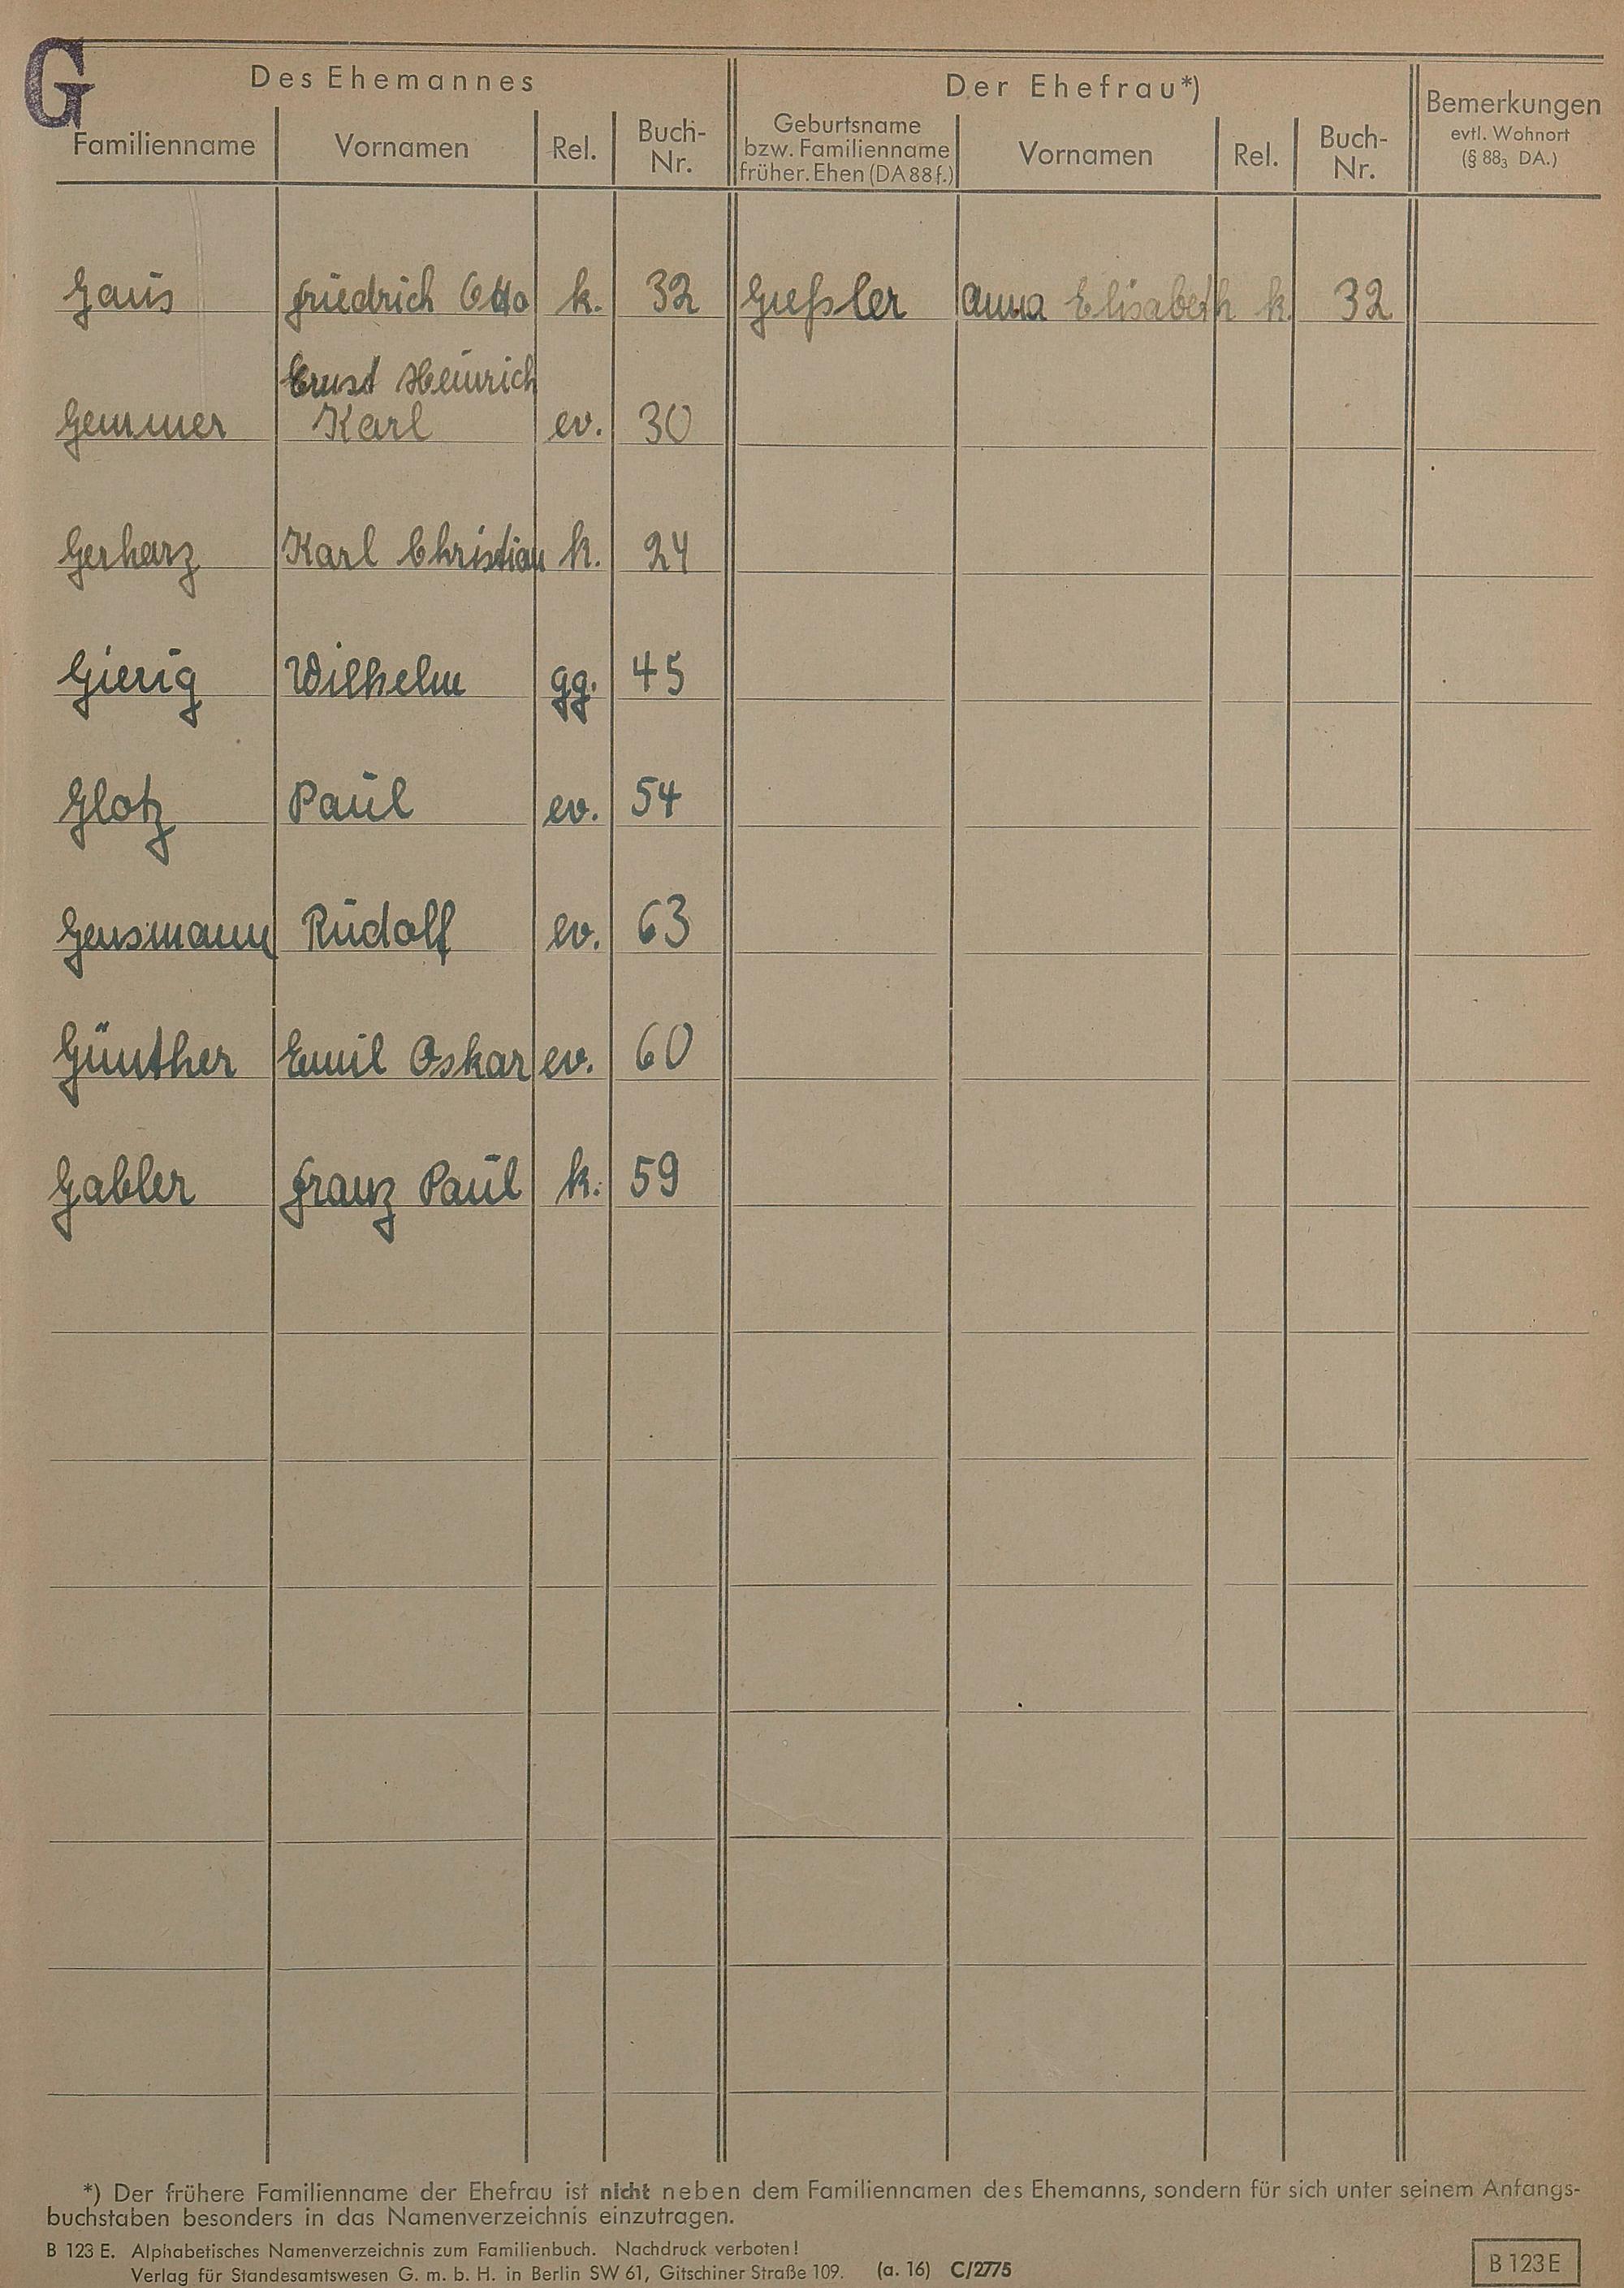 G
Des Ehemannes
Der Ehefrau*)
Bemerkungen
evtl. Wohnort
(§ 88₃ DA.)
Familienname Vornamen Rel. Buch-Nr. Geburtsname bzw. Familienname früher. Ehen (DA 88 f.) Vornamen Rel. Buch-Nr.
Gaus Friedrich Otto k. 32 Gießler Anna Elisabeth k. 32
Ernst Heinrich
Gemmer Karl ev. 30
Gerharz Karl Christian k. 24
Gierig Wilhelm gg. 45
Glotz Paul ev. 54
Gensmann Rudolf ev. 63
Günther Emil Oskar ev. 60
Gabler Franz Paul k. 59
*) Der frühere Familienname der Ehefrau ist nicht neben dem Familiennamen des Ehemanns, sondern für sich unter seinem Anfangs-
buchstaben besonders in das Namenverzeichnis einzutragen.
B 123 E. Alphabetisches Namenverzeichnis zum Familienbuch. Nachdruck verboten!
Verlag für Standesamtswesen G. m. b. H. in Berlin SW 61, Gitschiner Straße 109. (a. 16) C/2775
B 123 E